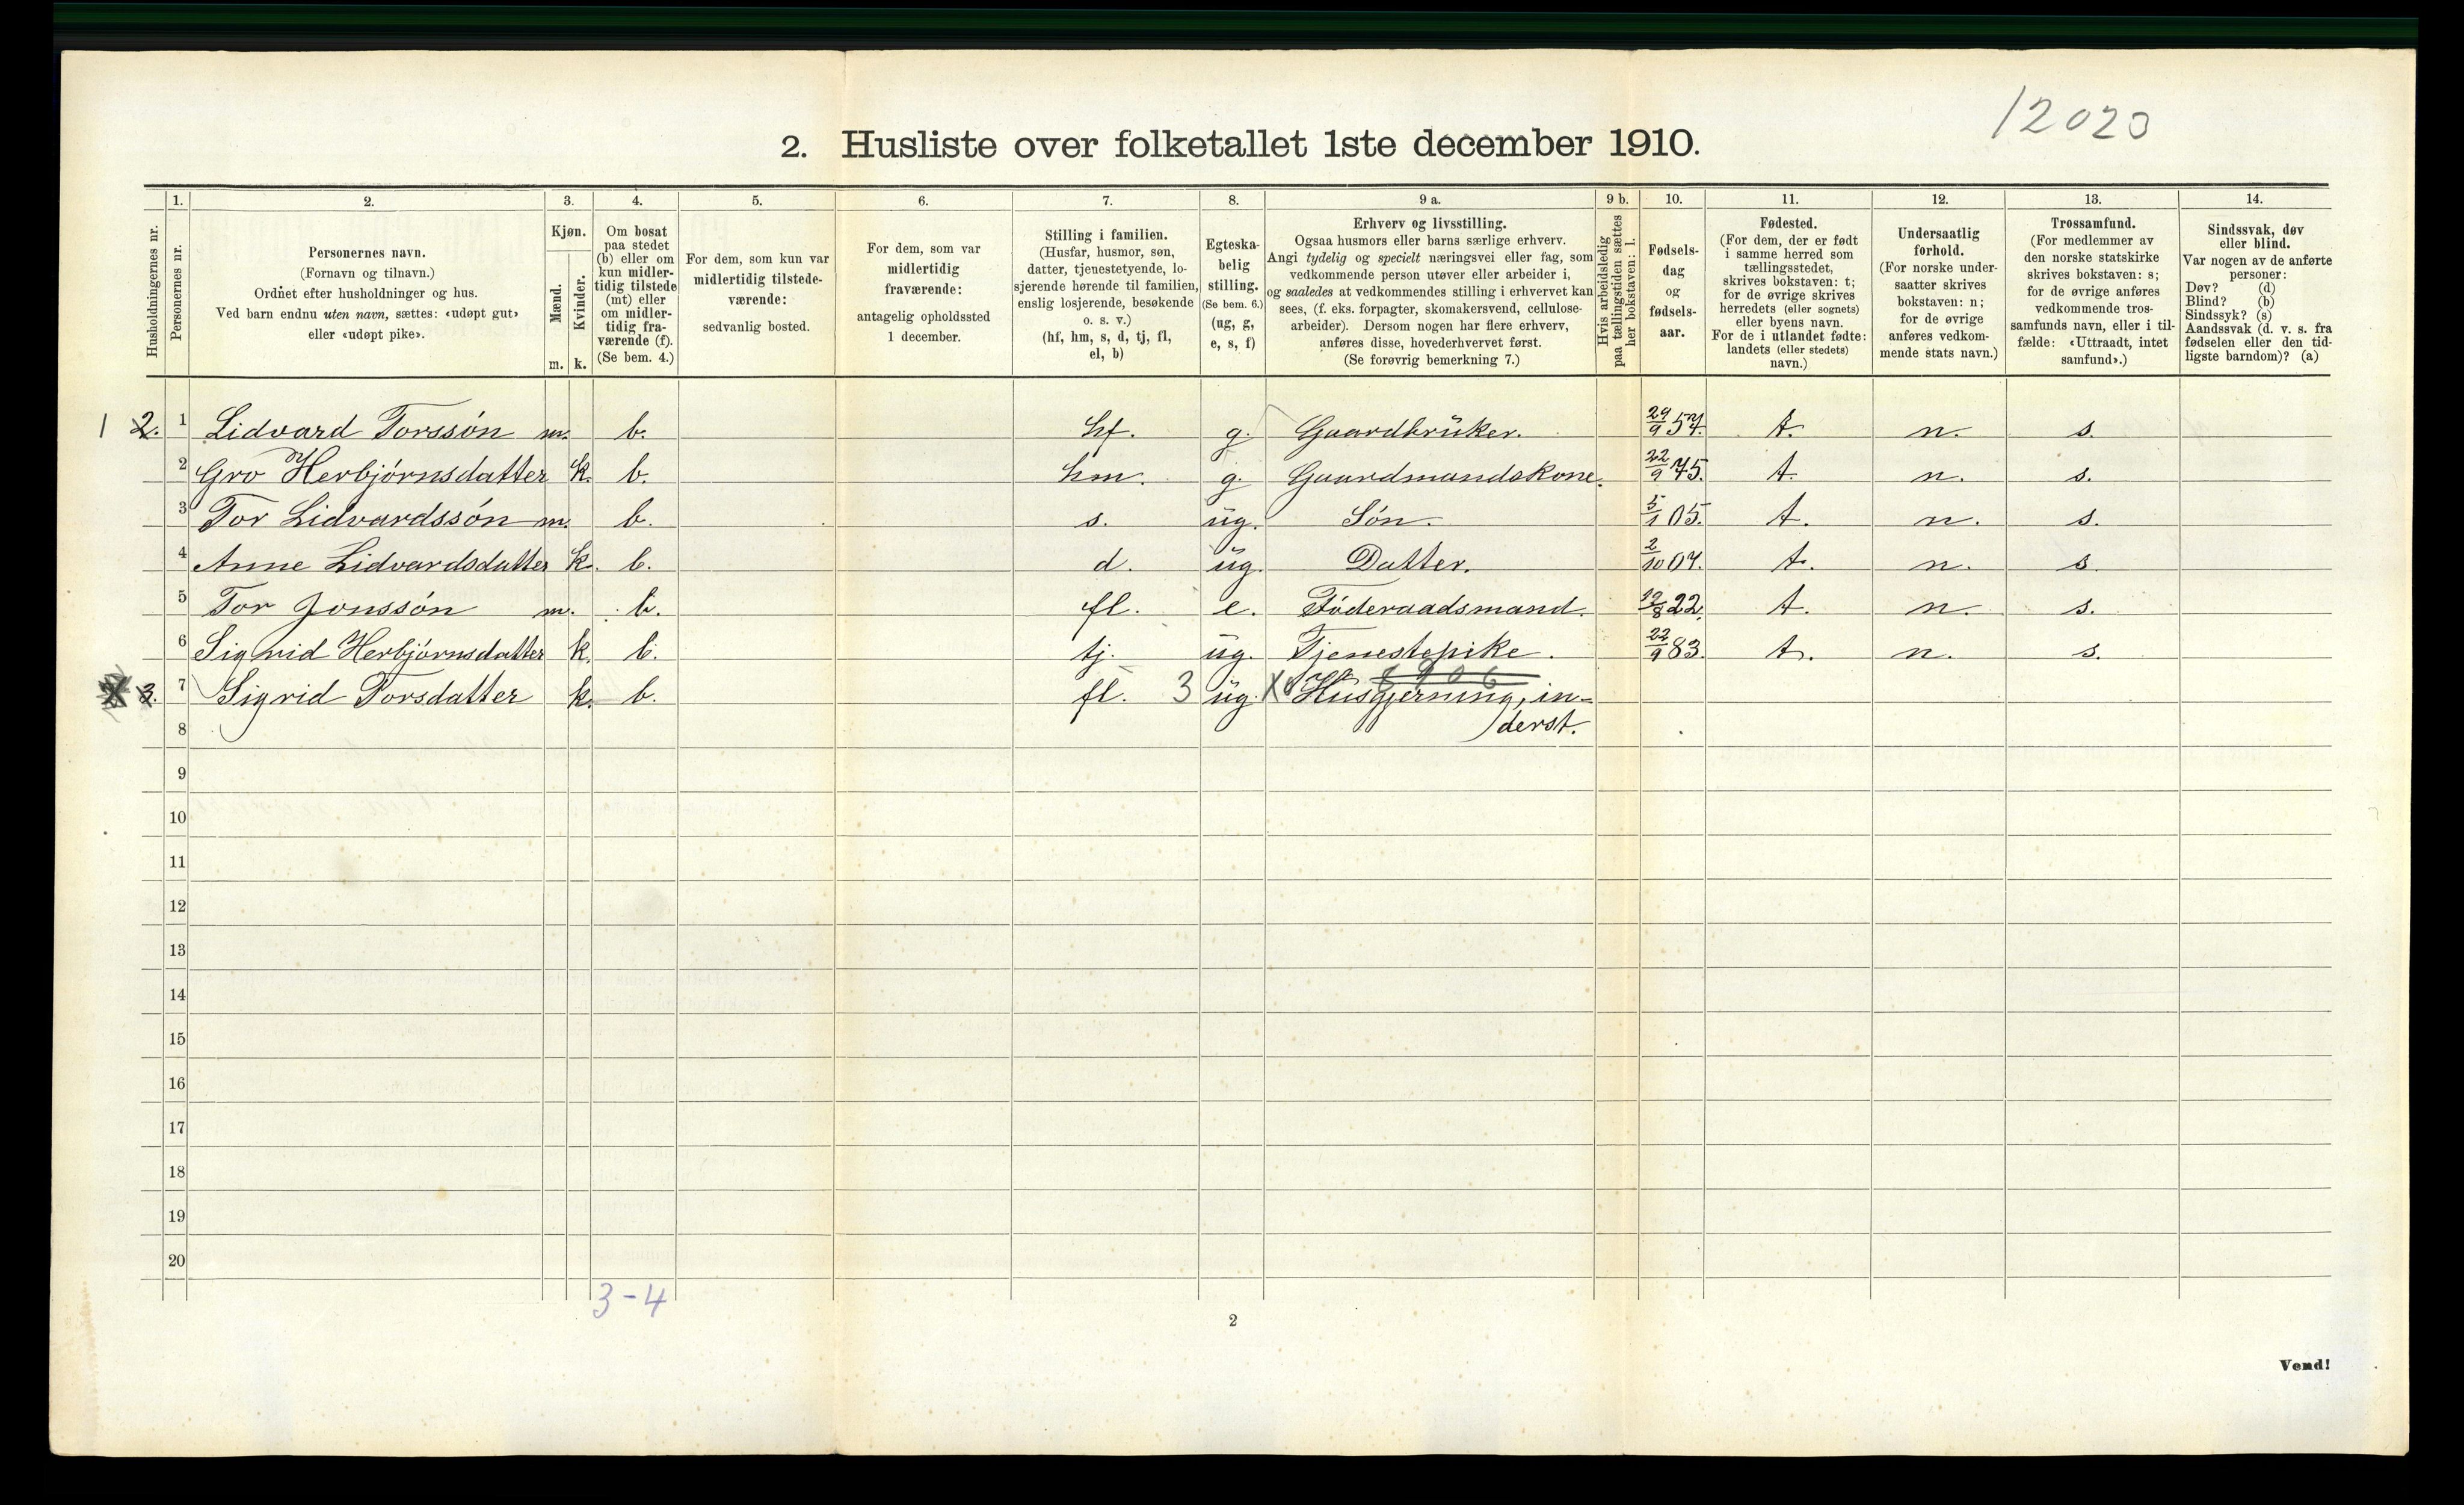 12020
2. Husliste over folketallet 1ste december 1910.
Husholdningernes nr.
1. Personernes nr.
2. Personernes navn. (Fornavn og tilnavn.) Ordnet efter husholdninger og hus. Ved barn endnu uten navn, sættes: «udøpt gut» eller «udøpt pike».
3. Kjøn. Mænd. m. Kvinder. k.
4. Om bosat paa stedet (b) eller om kun midlertidig tilstede (mt) eller om midlertidig fraværende (f). (Se bem. 4.)
5. For dem, som kun var midlertidig tilstedeværende: sedvanlig bosted.
6. For dem, som var midlertidig fraværende: antagelig opholdssted 1 december.
7. Stilling i familien. (Husfar, husmor, søn, datter, tjenestetyende, losjerende hørende til familien, enslig losjerende, besøkende o. s. v.) (hf, hm, s, d, tj, fl, el, b)
8. Egteskabelig stilling. (Se bem. 6.) (ug, g, e, s, f)
9 a. Erhverv og livsstilling. Ogsaa husmors eller barns særlige erhverv. Angi tydelig og specielt næringsvei eller fag, som vedkommende person utøver eller arbeider i, og saaledes at vedkommendes stilling i erhvervet kan sees, (f. eks. forpagter, skomakersvend, cellulosearbeider). Dersom nogen har flere erhverv, anføres disse, hovederhvervet først. (Se forøvrig bemerkning 7.)
9 b. Hvis arbeidsledig paa tællingstiden sættes her bokstaven: l.
10. Fødselsdag og fødselsaar.
11. Fødested. (For dem, der er født i samme herred som tællingsstedet, skrives bokstaven: t; for de øvrige skrives herredets (eller sognets) eller byens navn. For de i utlandet fødte: landets (eller stedets) navn.)
12. Undersaatlig forhold. (For norske undersaatter skrives bokstaven: n; for de øvrige anføres vedkommende stats navn.)
13. Trossamfund. (For medlemmer av den norske statskirke skrives bokstaven: s; for de øvrige anføres vedkommende trossamfunds navn, eller i tilfælde: «Uttraadt, intet samfund».)
14. Sindssvak, døv eller blind. Var nogen av de anførte personer: Døv? (d) Blind? (b) Sindssyk? (s) Aandssvak (d. v. s. fra fødselen eller den tidligste barndom)? (a)
1 2. 1 Lidvard Torssón m. b. hf. g. Gaardbrüker. 29/9 57. t. n. s.
2 Gro Herbjórnsdatter k. b. hm. g. Gaardmandskone. 22/9 75. t. n. s.
3 Tor Lidvardssón m. b. s. üg. Són. 5/1 05. t. n. s.
4 Anne Lidvardsdatter k. b. d. üg. Datter. 2/10 07. t. n. s.
5 Tor Jonssón m. b. fl. e. Fóderaadsmand. 12/8 22. t. n. s.
6 Sigrid Herbjórnsdatter k. b. tj. üg. Tjenestepike. 22/9 83. t. n. s.
3. 7 Sigrid Torsdatter k. b. fl. 3 üg. X Hüsgjerning, in-
8 derst.
9
10
11
12
13
14
15
16
17
18
19
20
3-4
2
Vend!